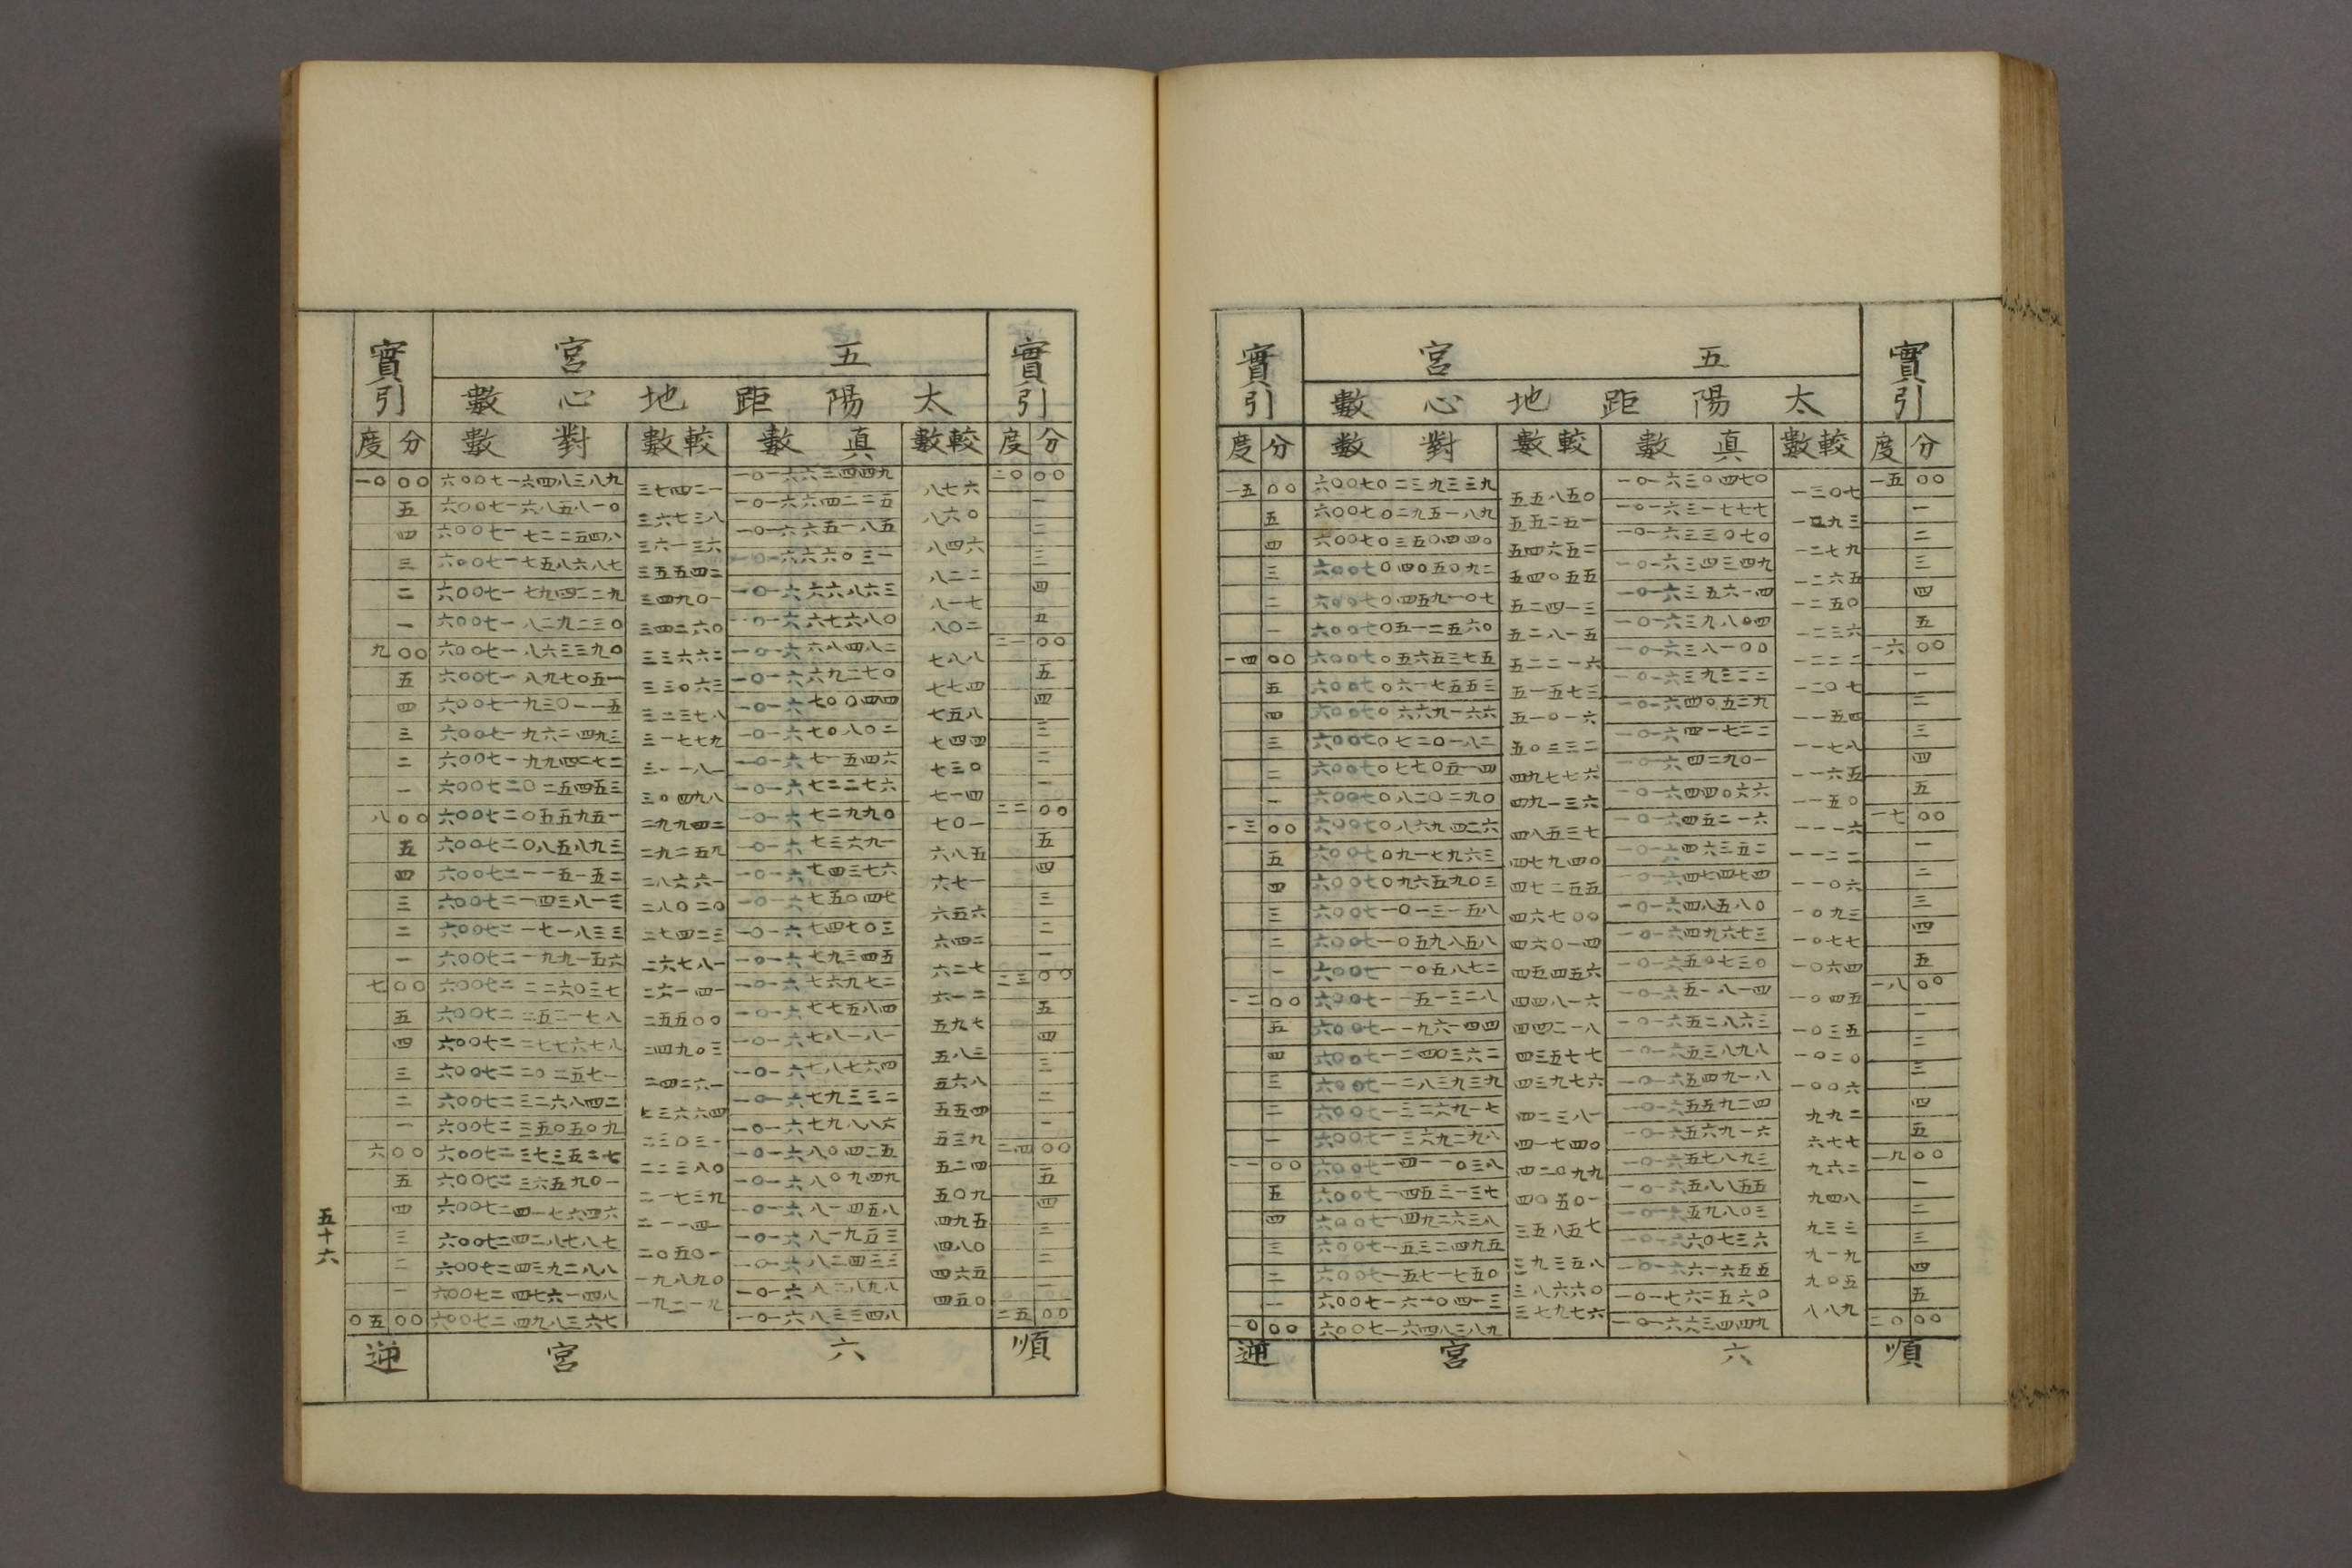 實引 五宮 實引
太陽距地心數
分 度 較數 真數 較數 對數 分 度
一五 〇〇 六〇〇七〇二三九三三九 一〇一六三〇四七〇 一五 〇〇
五五八五〇 一三〇七
五 六〇〇七〇二九五一八九 一〇一六三一七七七 一
五五二五一 一口九三
四 六〇〇七〇三五〇四四〇 一〇一六三三〇七〇 二
五四六五二 一二七九
三 六〇〇七〇四〇五〇九二 一〇一六三四三四九 三
五四〇五五 一二六五
二 六〇〇七〇四五九一〇七 一〇一六三五六一四 四
五二四一三 一二五〇
一 六〇〇七〇五一二五六〇 一〇一六三九八〇四 五
五二八一五 一二三六
一四 〇〇 六〇〇七〇五六五三七五 一〇一六三八一〇〇 一六 〇〇
五二二一六 一二二二
五 六〇〇七〇六一七五五三 一〇一六三九三二二 一
五一五七三 一二〇七
四 六〇〇七〇六六九一六六 一〇一六四〇五二九 二
五一〇一六 一一五四
三 六〇〇七〇七二〇一八二 一〇一六四一七二二 三
五〇三三二 一一七八
二 六〇〇七〇七七〇五一四 一〇一六四二九〇一 四
四九七七六 一一六五
一 六〇〇七〇八二〇二九〇 一〇一六四四〇六六 五
四九一三六 一一五〇
一三 〇〇 六〇〇七〇八六九四二六 一〇一六四五二一六 一七 〇〇
四八五三七 一一一六
五 六〇〇七〇九一七九六三 一〇一六四六三五二 一
四七九四〇 一一二二
四 六〇〇七〇九六五九〇三 一〇一六四七四七四 二
四七二五五 一一〇六
三 六〇〇七一〇一三一五八 一〇一六四八五八〇 三
四六七〇〇 一〇九三
二 六〇〇七一〇五九八五八 一〇一六四九六七三 四
四六〇一四 一〇七七
一 六〇〇七一一〇五八七二 一〇一六五〇七三〇 五
四五四五六 一〇六四
一二 〇〇 六〇〇七一一五一三二八 一〇一六五一八一四 一八 〇〇
四四八一六 一〇四五
五 六〇〇七一一九六一四四 一〇一六五二八六三 一
四四二一八 一〇三五
四 六〇〇七一二四〇三六二 一〇一六五三八九八 二
四三五七七 一〇二〇
三 六〇〇七一二八三九三九 一〇一六五四九一八 三
四三九七六 一〇〇六
二 六〇〇七一三二六九一七 一〇一六五五九二四 四
四二三八一 九九二
一 六〇〇七一三六九二九八 一〇一六五六九一六 五
四一七四〇 六七七
一一 〇〇 六〇〇七一四一一〇三八 一〇一六五七八九三 一九 〇〇
四二〇九九 九六二
五 六〇〇七一四五三一三七 一〇一六五八八五五 一
四〇五〇一 九四八
四 六〇〇七一四九二六三八 一〇一六五九八〇三 二
三五八五七 九三三
三 六〇〇七一五三二四九五 一〇一六六〇七三六 三
三九三五八 九一九
二 六〇〇七一五七一七五〇 一〇一六六一六五五 四
三八六六〇 九〇五
一 六〇〇七一六一〇四一三 一〇一七六二五六〇 五
三七九七六 八八九
一〇 〇〇 六〇〇七一六四八三八九 一〇一六六三四四九 二〇 〇〇
順 六宮 逆
實引 五宮 實引
太陽距地心數
分 度 較數 真數 較數 對數 分 度
一〇 〇〇 六〇〇七一六四八三八九 一〇一六六三四四九 二〇 〇〇
三七四二一 八七六
五 六〇〇七一六八五八一〇 一〇一六六四二二五 一
三六七三八 八六〇
四 六〇〇七一七二二五四八 一〇一六六五一八五 二
三六一三六 八四六
三 六〇〇七一七五八六八七 一〇一六六六〇三一 三
三五五四二 八二二
二 六〇〇七一七九四二二九 一〇一六六六八六三 四
三四九〇一 八一七
一 六〇〇七一八二九二三〇 一〇一六六七六八〇 五
三四二六〇 八〇二
九 〇〇 六〇〇七一八六三三九〇 一〇一六六八四八二 二一 〇〇
三三六六二 七八八
五 六〇〇七一八九七〇五一 一〇一六六九二七〇 五
三三〇六三 七七四
四 六〇〇七一九三〇一一五 一〇一六七〇〇四四 四
三二三七八 七五八
三 六〇〇七一九六二四九三 一〇一六七〇八〇二 三
三一七七九 七四四
二 六〇〇七一九九四二七二 一〇一六七一五四六 二
三一一八一 七三〇
一 六〇〇七二〇二五四五三 一〇一六七二二七六 一
三〇四九八 七一四
八 〇〇 六〇〇七二〇五五九五一 一〇一六七二九九〇 二二 〇〇
二九九四二 七〇一
五 六〇〇七二〇八五八九三 一〇一六七三六九一 五
二九二五九 六八五
四 六〇〇七二一一五一五二 一〇一六七四三七六 四
二八六六一 六七一
三 六〇〇七二一四三八一三 一〇一六七五〇四七 三
二八〇二〇 六五六
二 六〇〇七二一七一八三三 一〇一六七四七〇三 二
二七四二三 六四二
一 六〇〇七二一九九一五六 一〇一六七九三四五 一
二六七八一 六二七
七 〇〇 六〇〇七二二二六〇三七 一〇一六七六九七二 二三 〇〇
二六一四一 六一二
五 六〇〇七二二五二一七八 一〇一六七七五八四 五
二五五〇〇 五九七
四 六〇〇七二二七七六七八 一〇一六七八一八一 四
二四九〇三 五八三
三 六〇〇七二二〇二五七一 一〇一六七八七六四 三
二四二六一 五六八
二 六〇〇七二三二六八四二 一〇一六七九三三二 二
七三六六四 五五四
一 六〇〇七二三五〇五〇九 一〇一六七九八八六 一
二三〇三一 五三九
六 〇〇 六〇〇七二三七三五二七 一〇一六八〇四二五 二四 〇〇
二二三八〇 五二四
五 六〇〇七二三六五九〇一 一〇一六八〇九四九 五
二一七三九 五〇九
四 六〇〇七二四一七六四六 一〇一六八一四五八 四
二一一四一 四九五
三 六〇〇七二四二八七八七 一〇一六八一九五三 三
二〇五〇一 四八〇
二 六〇〇七二四三九二八八 一〇一六八二四三三 二
一九八九〇 四六五
一 六〇〇七二四七六一四八 一〇一六八二八九八 一
一九二一九 四五〇
〇五 〇〇 六〇〇七二四九八三六七 一〇一六八三三四八 二五 〇〇
順 六宮 逆
五十六